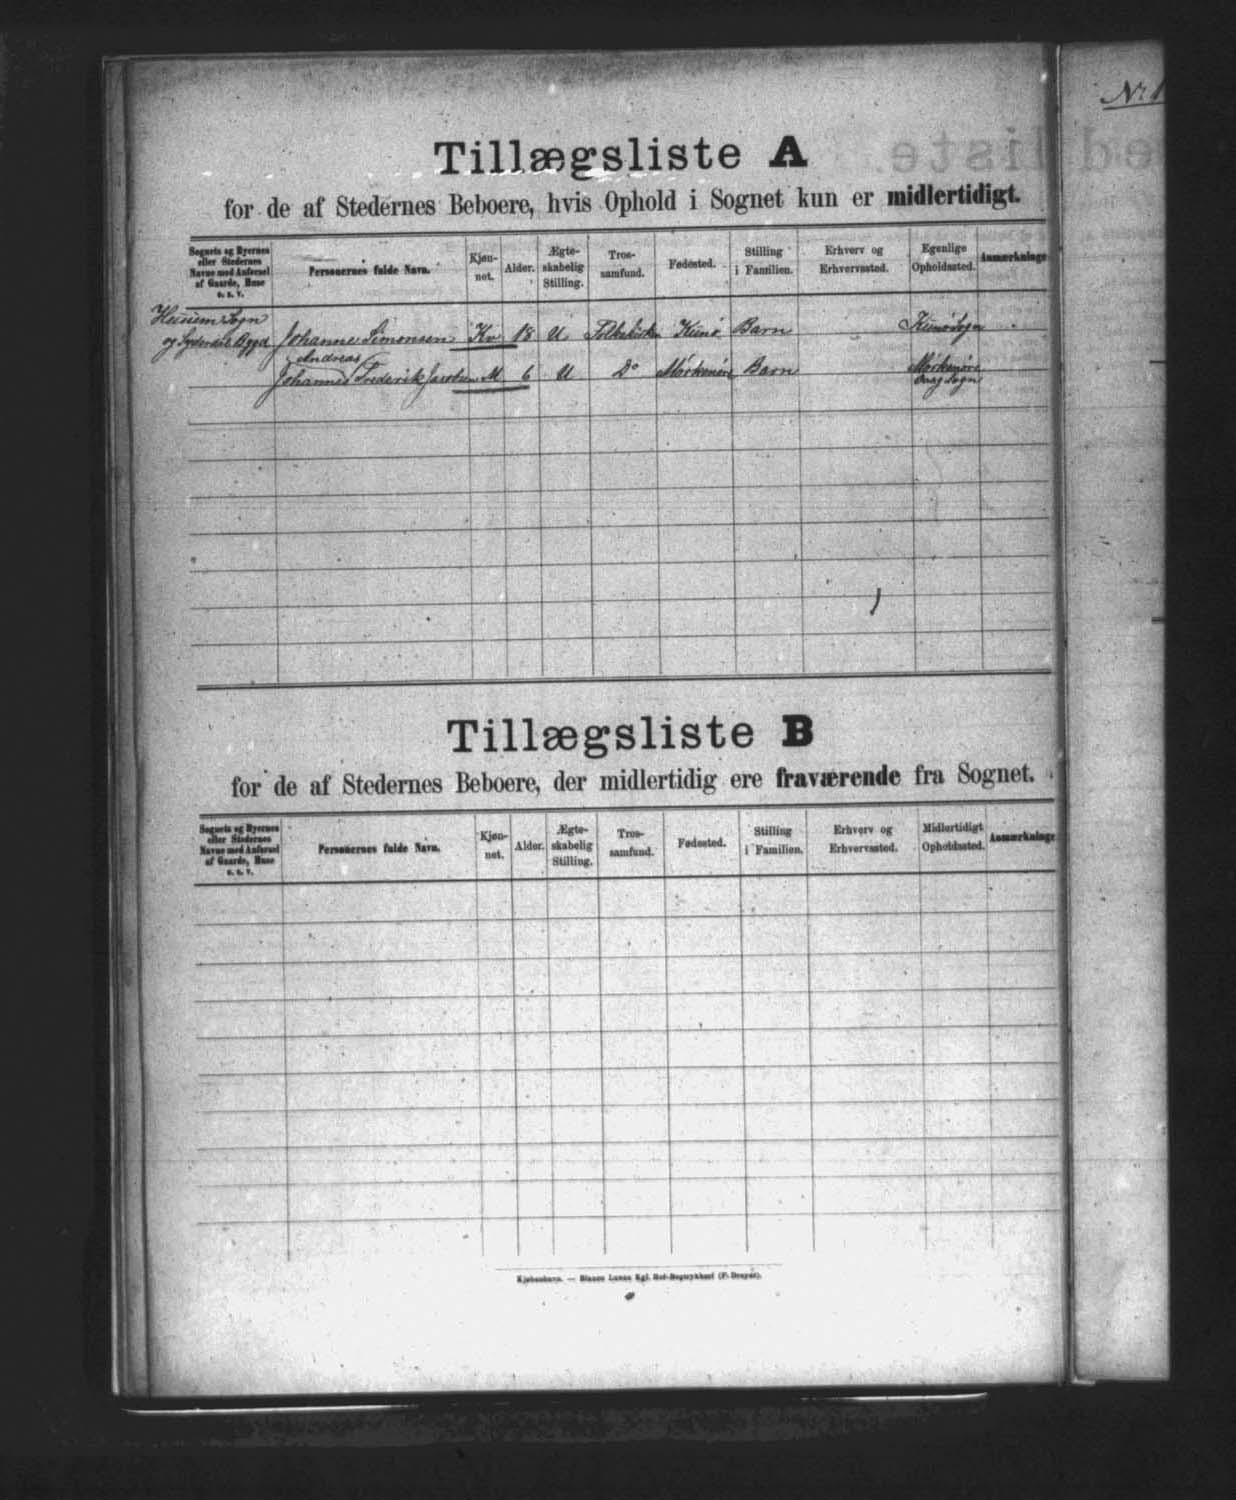 Nr 1
Tillægsliste A
for de af Stedernes Beboere, hvis Ophold i Sognet kun er midlertidigt.
Sognets og Byernes eller Stedernes Navne med Anførsel af Gaarde, Huse o. s. v.
Personernes fulde Navn.
Kjøn-net.
Alder.
Ægte-skabelig Stilling.
Tros-samfund.
Fødested.
Stilling i Familien.
Erhverv og Erhvervssted.
Egenlige Opholdssted.
Anmærkninge
Sogn
og Bygd Johanne Simonsen Kv 18 U Folkekirken Kunø Barn Kunø Sogn
Andreas
Johannes Frederik Jacobsen M 6 U Do Barn
Sogn
Tillægsliste B
for de af Stedernes Beboere, der midlertidig ere fraværende fra Sognet.
Sognets og Byernes eller Stedernes Navne med Anførsel af Gaarde, Huse o. s. v.
Personernes fulde Navn.
Kjøn-net.
Alder.
Ægte-skabelig Stilling.
Tros-samfund.
Fødested.
Stilling i Familien.
Erhverv og Erhvervssted.
Midlertidigt Opholdssted.
Anmærkninge
Kjøbenhavn. — Bianco Lunos Kgl. Hof-Bogtrykkeri (F. Dreyer).